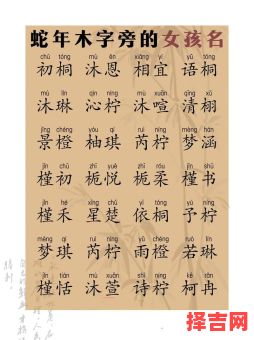 蛇年木字旁的女孩名
chū tóng mù ēn xiāng yí yǔ tóng
初桐 沐恩 相宜 语桐
mù lín qìn níng mù xuān qīng xǔ
沐琳 沁柠 沐喧 清栩
jǐng chéng yòu qí ruì níng mèng hán
景橙 柚琪 芮柠 梦涵
jǐn chū zhī yuè zhī róu jǐn shū
槿初 栀悦 栀柔 槿书
jǐn hé xīng chǔ yī tóng yǔ níng
槿禾 星楚 依桐 予柠
mèng qí ruì níng yǔ chéng ruò lín
梦琪 芮柠 雨橙 若琳
jǐn tián mù xuān shī níng kē rǎn
槿恬 沐萱 诗柠 柯冉
择吉网